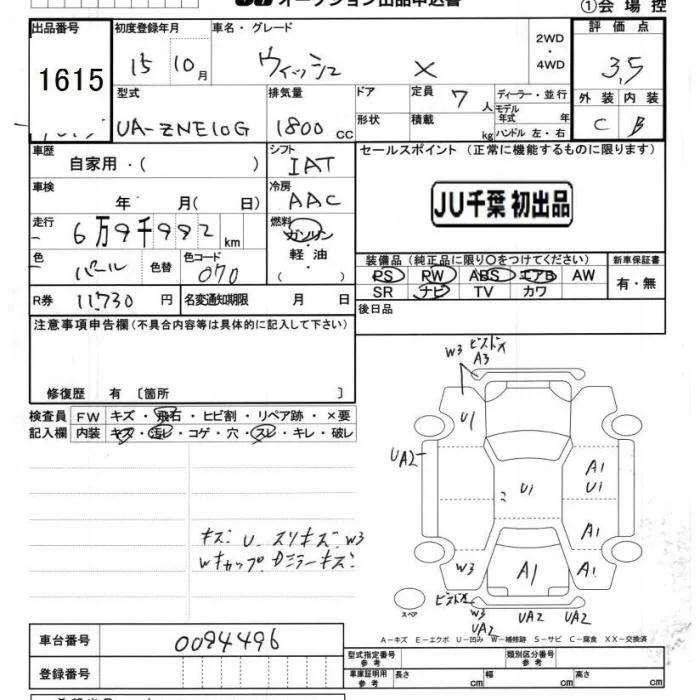 オークション出品申込書
①会場控
出品番号 初度登録年月 車名・グレード 評価点
1615 15 10月 ウィッシュ X 2WD・4WD 3,5
型式 排気量 ドア 定員 7人 ディーラー・並行 外装 内装
UA-ZNE10G 1800cc 形状 積載 kg モデル年式 年 ハンドル 左・右 C B
車歴 シフト セールスポイント (正常に機能するものに限ります)
自家用・( ) IAT
車検 冷房
年 月( 日) AAC JU千葉 初出品
走行 燃料
6万9千992km ガソリン・軽油・( )
色 色替 色コード 装備品(純正品に限り○をつけてください) 新車保証書
パール 070 PS RW ABS エアB AW 有・無
R券 11,730円 名変通知期限 月 日 SR ナビ TV カワ
注意事項申告欄(不具合内容等は具体的に記入して下さい) 後日品
修復歴 有 〔箇所 〕
検査員 FW キズ・飛石・ヒビ割・リペア跡・×要
記入欄 内装 キズ・汚レ・コゲ・穴・スレ・キレ・破レ
W3 ビスドメ
A3
U1
UA2
A1
U1
U1
A1
W3 A1 A1
キズ U スリキズ W3
Wキャップ Dミラーキズ
スペア
W3
UA2 UA2 UA2
A－キズ E－エクボ U－凹み W－補修跡 S－サビ C－腐食 XX－交換済
車台番号 0094496
型式指定番号 参考 類別区分番号 参考
登録番号 車庫証明用 参考 長さ cm 幅 cm 高さ cm